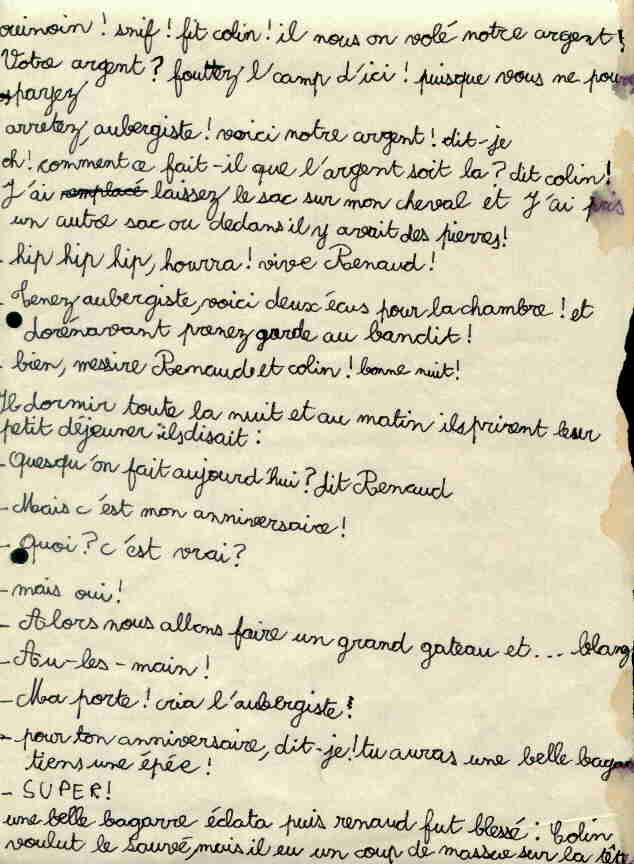 ouinoin ! snif ! fit colin ! il nous on volé notre argent !
Votre argent ? fouttez l'camp d'ici ! puisque vous ne pouv
payez
arretez, aubergiste ! voici notre argent ! dit-je
oh ! comment ce fait-il que l'argent soit la ? dit colin !
J'ai remplacé laissez le sac sur mon cheval et J'ai pris
un autre sac ou dedans il y avait des pierres !
- hip hip hip, hourra ! vive Renaud !
- Tenez aubergiste, voici deux écus pour la chambre ! et
dorénavant prenez garde au bandit !
- bien, messire Renaud et colin ! bonne nuit !
Il dormir toute la nuit et au matin ils prirent leur
petit déjeuner ils disait :
- Quesqu'on fait aujourd'hui ? dit Renaud
- Mais c'est mon anniversaire !
- Quoi ? c'est vrai ?
- mais oui !
- Alors nous allons faire un grand gateau et... blang
- Au-les-main !
- Ma porte ! cria l'aubergiste !
- pour ton anniversaire, dit-je ! tu auras une belle bagar
tiens une épée !
- SUPER !
une belle bagarre éclata puis renaud fut blessé : Colin
voulut le sauvé, mais il eu un coup de massue sur la têt